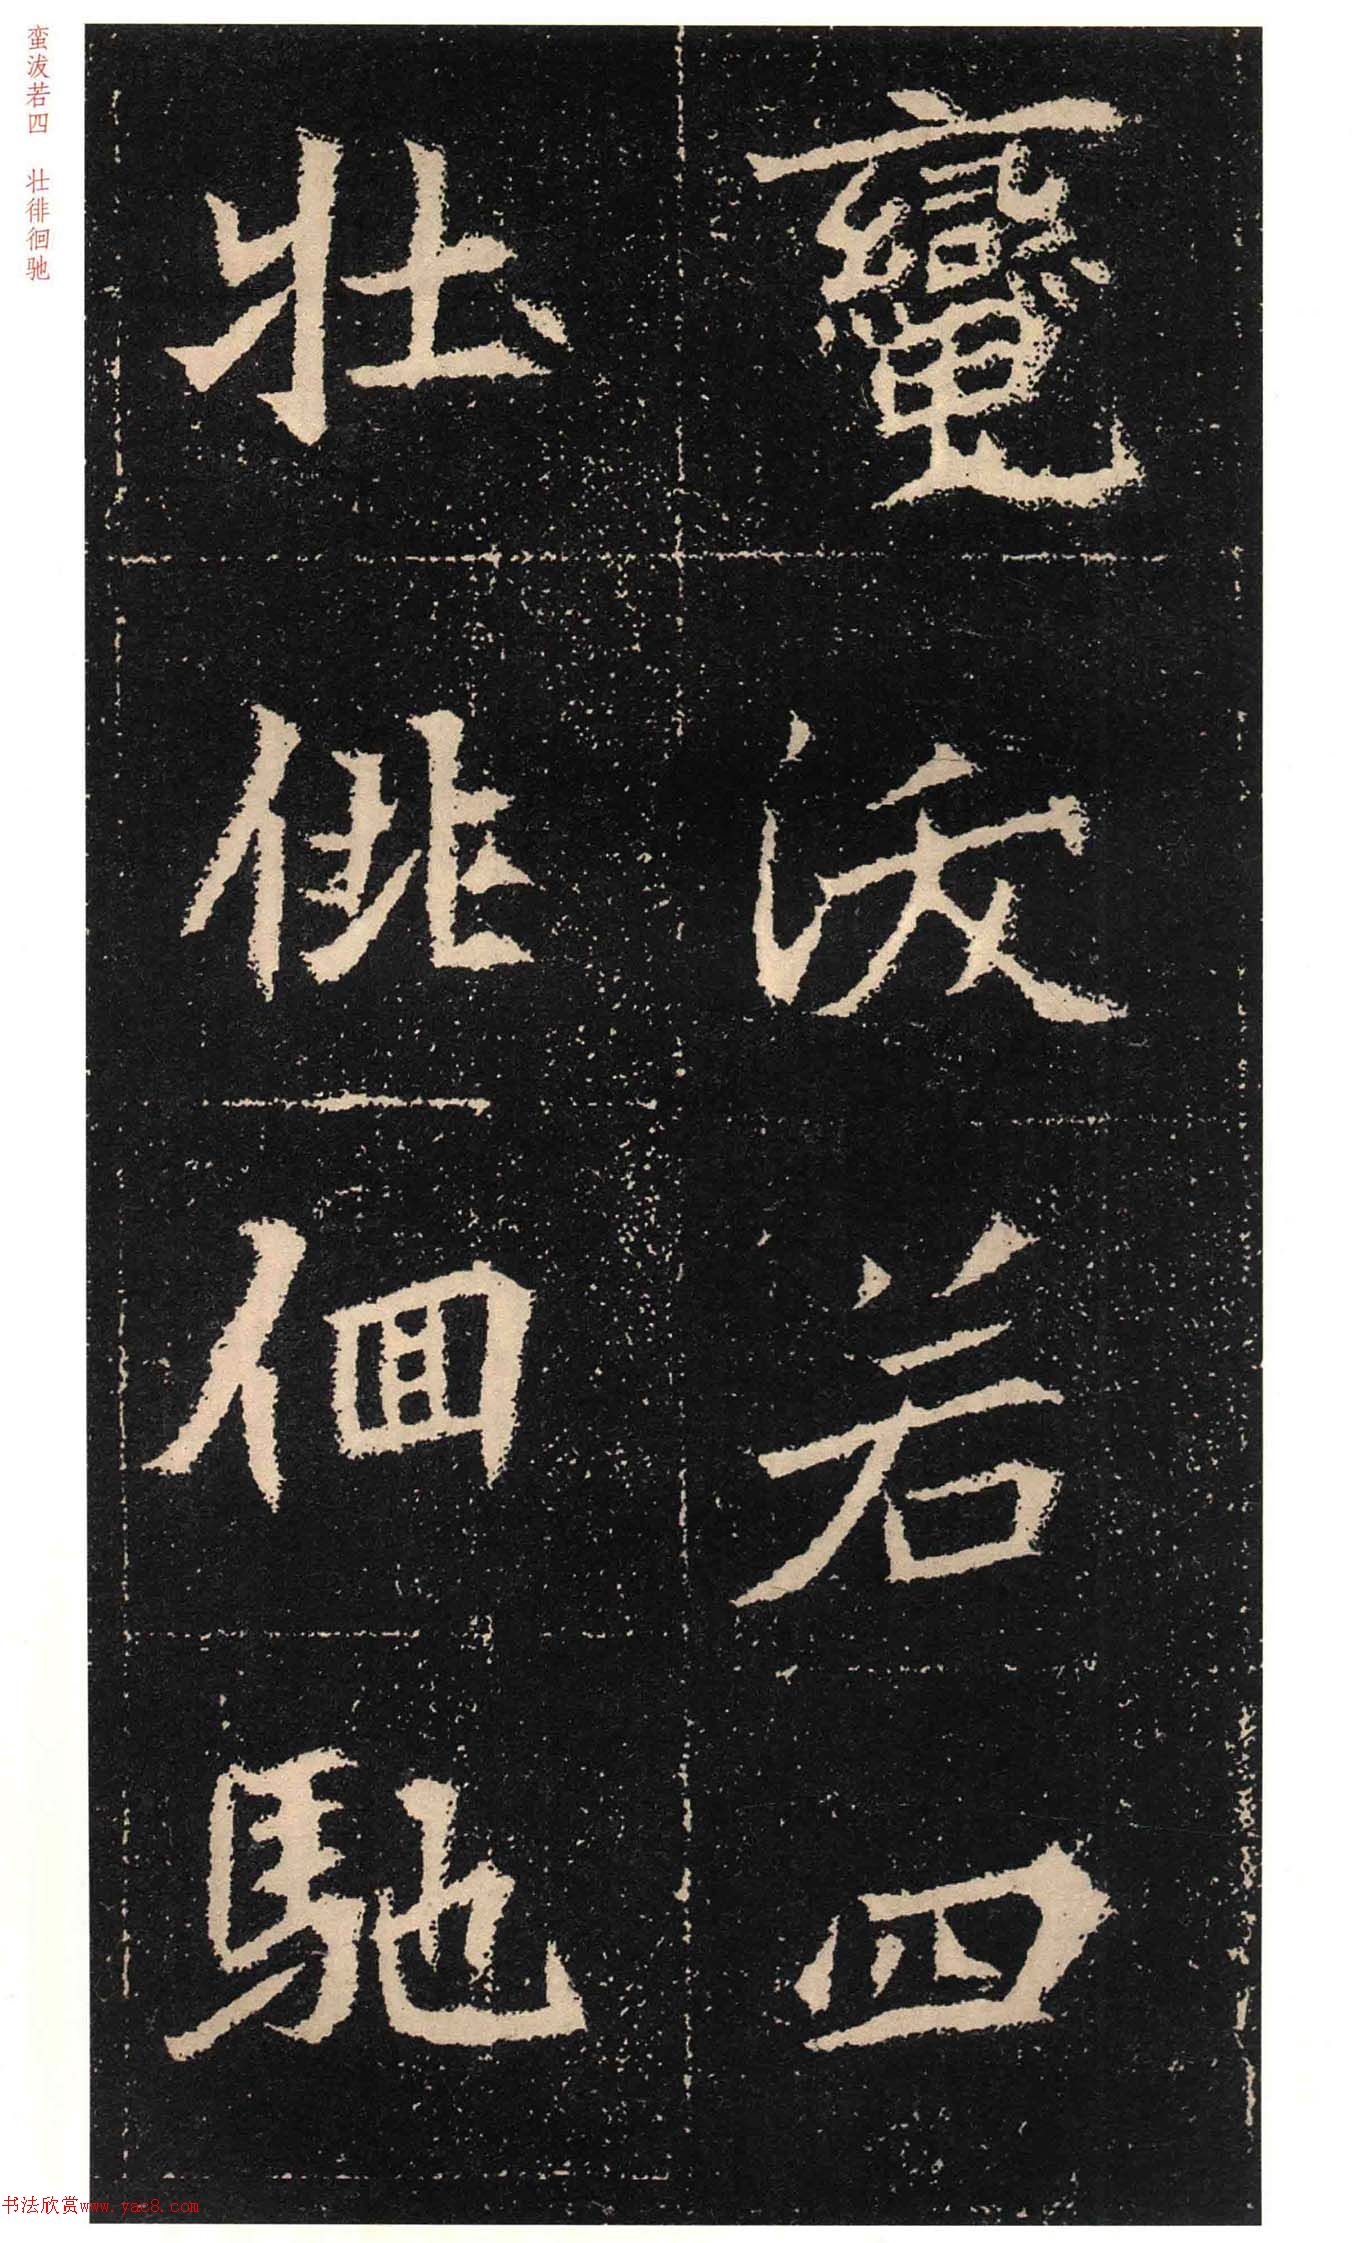 蠻沷若四
壯徘徊馳
蛮沷若四 壮徘徊驰
书法欣赏www.yac8.com